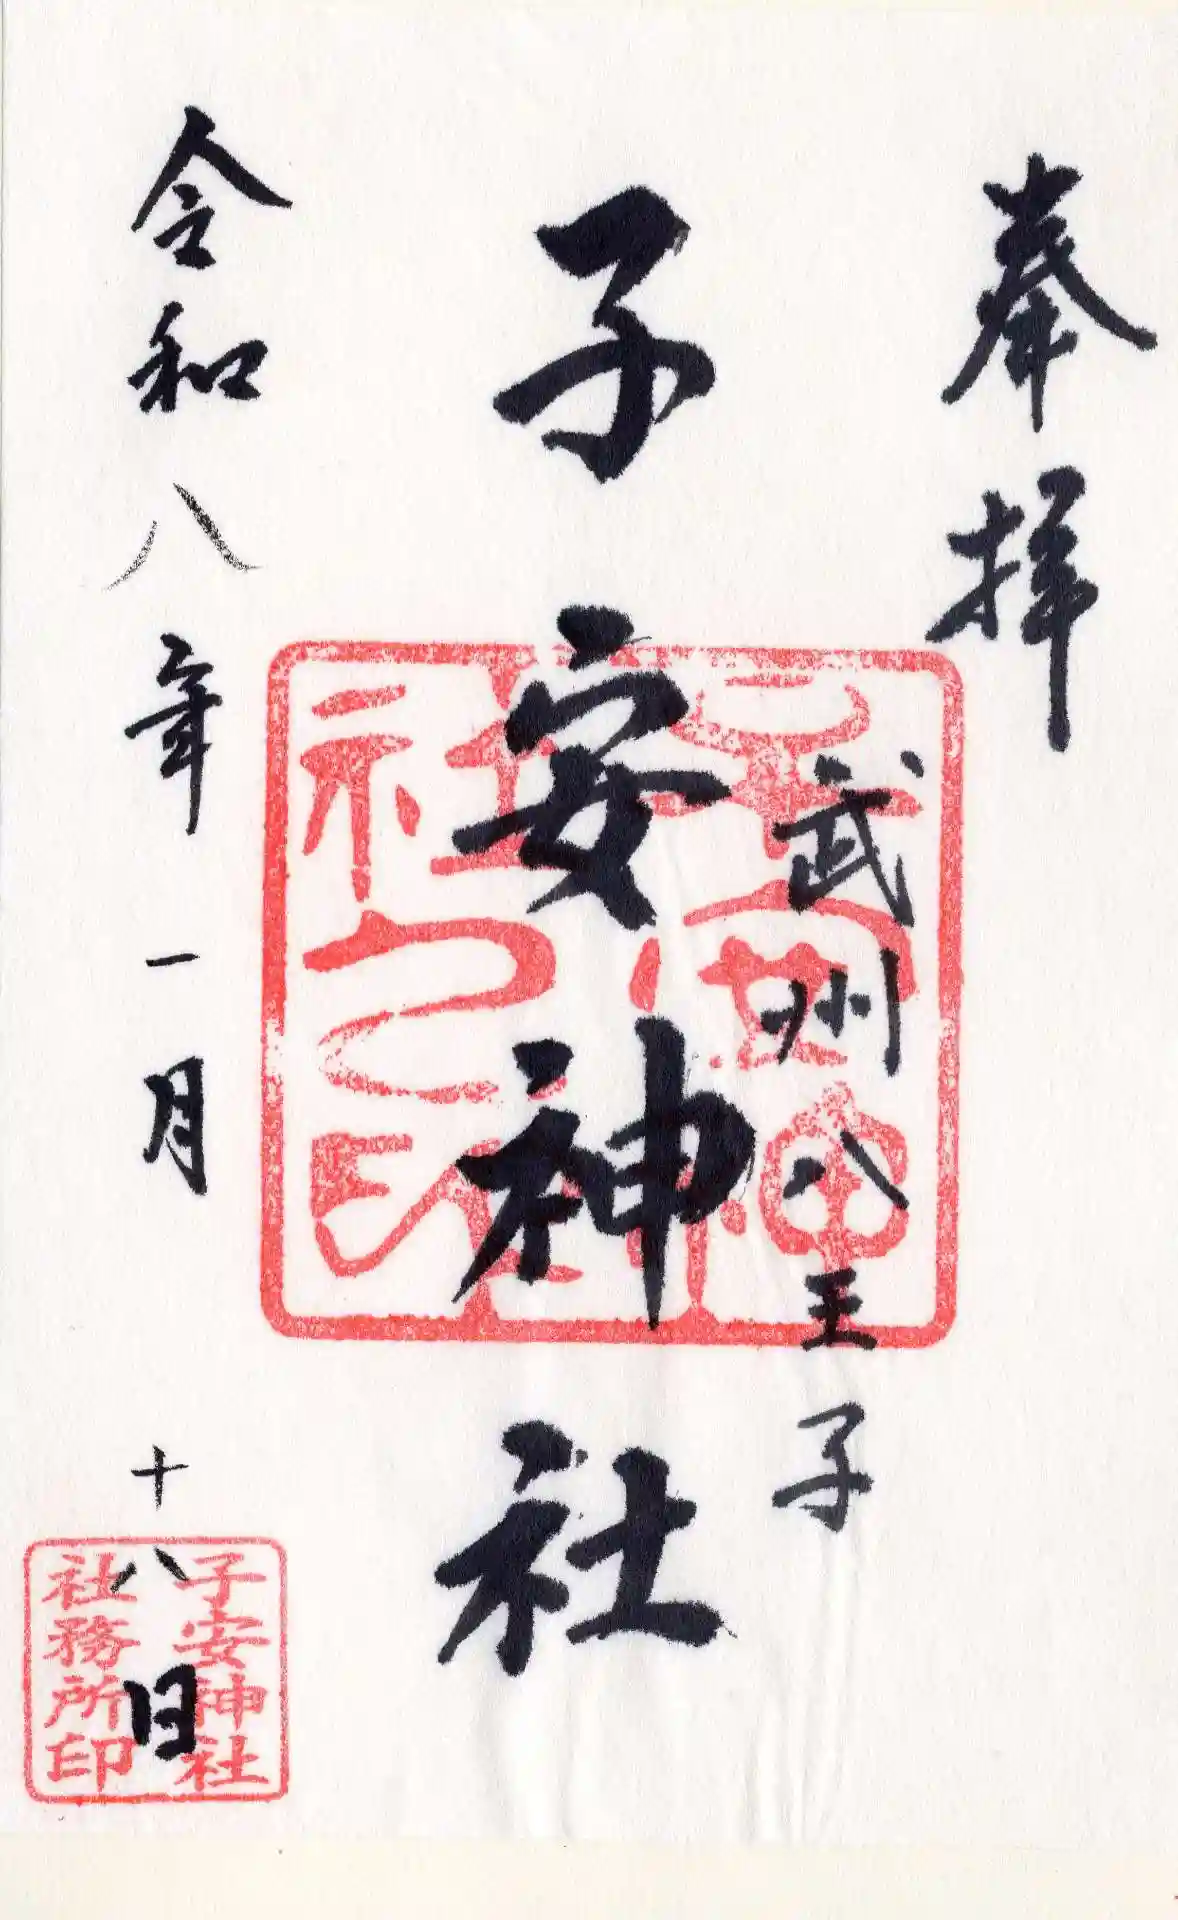 奉拝
武州八王子
子安神社
子安神
社之印
令和八年一月十八日
子安神社
社務所印